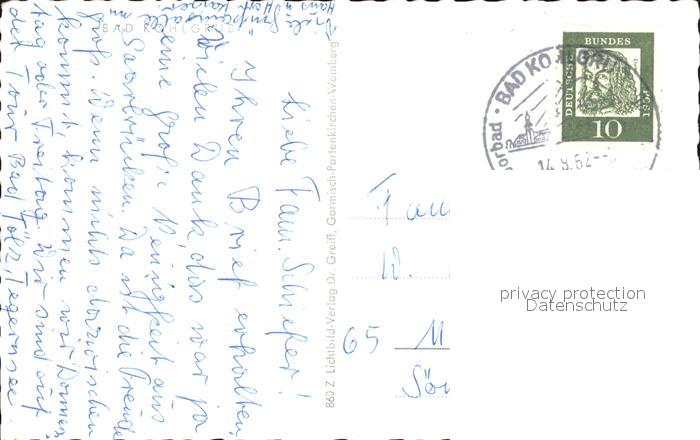 BAD KOHLGRUB
Liebe Fam. Schiefer!
Ihren Brief erhalten,
Vielen Dank, das war ja
eine große Neuigkeit aus
Saarbrücken. Da ist die Freude
groß. Wenn nichts dazwischen
kommt, kommen wir Donners
tag oder Freitag. Wir sind auf
der Tour Bad Tölz, Tegernsee.
860 Z Lichtbild-Verlag Dr. Greiff, Garmisch-Partenkirchen-Wamberg
BAD KOHLGRU
orbad
14.9.62--
DEUTSCHE BUNDES
10
1961
Fam
W.
65 M
privacy protection
Datenschutz